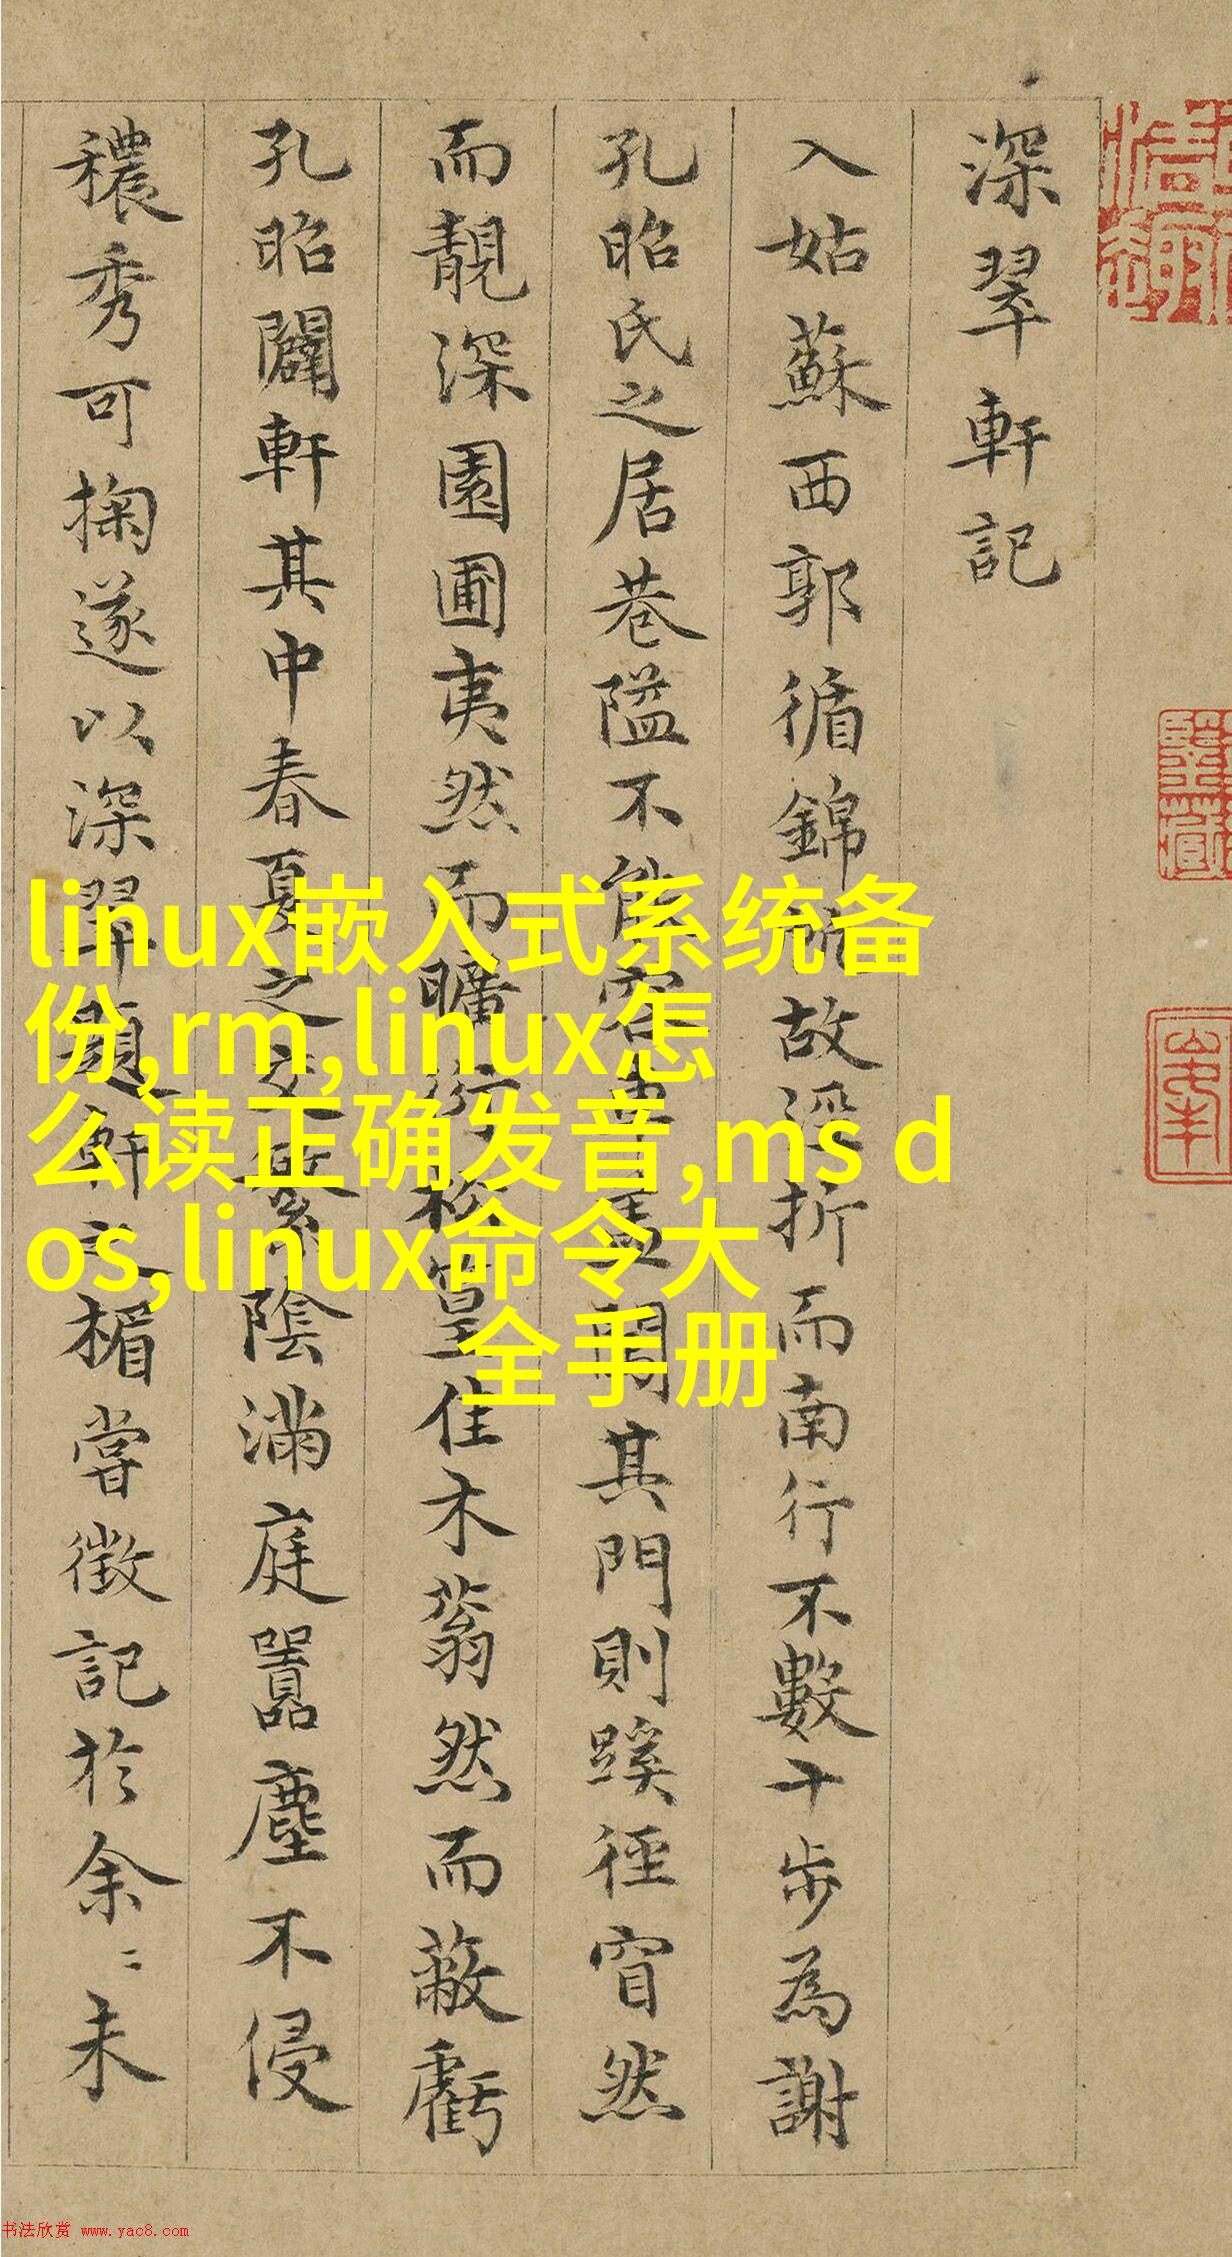 深翠軒記
入姑蘇西郭循錦帆故涇折而南行不數十步為謝
孔昭氏之居巷隘不能容車蓋其門則蹊徑窅然
而靚深園圃夷然而曠衍松篁佳木蓊然而蔽虧
孔昭闢軒其中春夏之交繁陰滿庭囂塵不侵
穠秀可掬遂以深翠題軒之楣嘗徵記於余〻未
linux嵌入式系统备
份,rm,linux怎
么读正确发音,ms d
os,linux命令大
全手册
书法欣赏 www.yac8.com